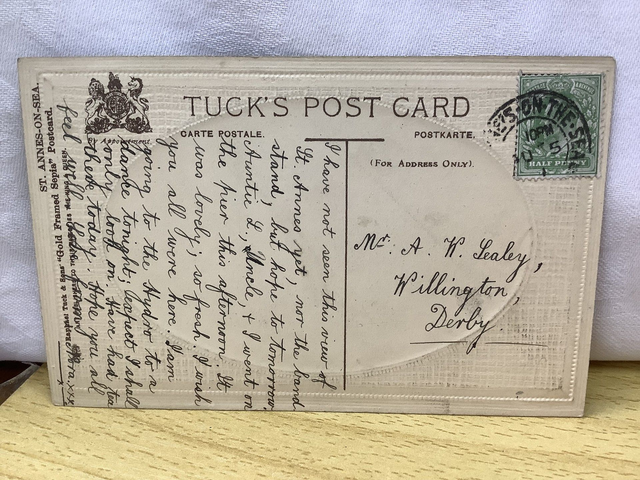 TUCK'S POST CARD
By Appointment.
CARTE POSTALE.
POSTKARTE.
(FOR ADDRESS ONLY).
ST. ANNES-ON-SEA.
Raphael Tuck & Sons' "Gold Framed Sepia" Postcard.
HALF PENNY
S-ON-THE-SEA
10 PM
5
Mr. A. W. Sealey,
Willington,
Derby
I have not seen this view of
St Annes yet, nor the band
stand, but hope to tomorrow
Auntie L., Uncle & I went on
the pier this afternoon. It
was lovely, so fresh. I wish
you all were here. I am
going to the Hydro to a
dance tonight, expect I shall
only look on. Have had tea
there today. Hope you all
feel well